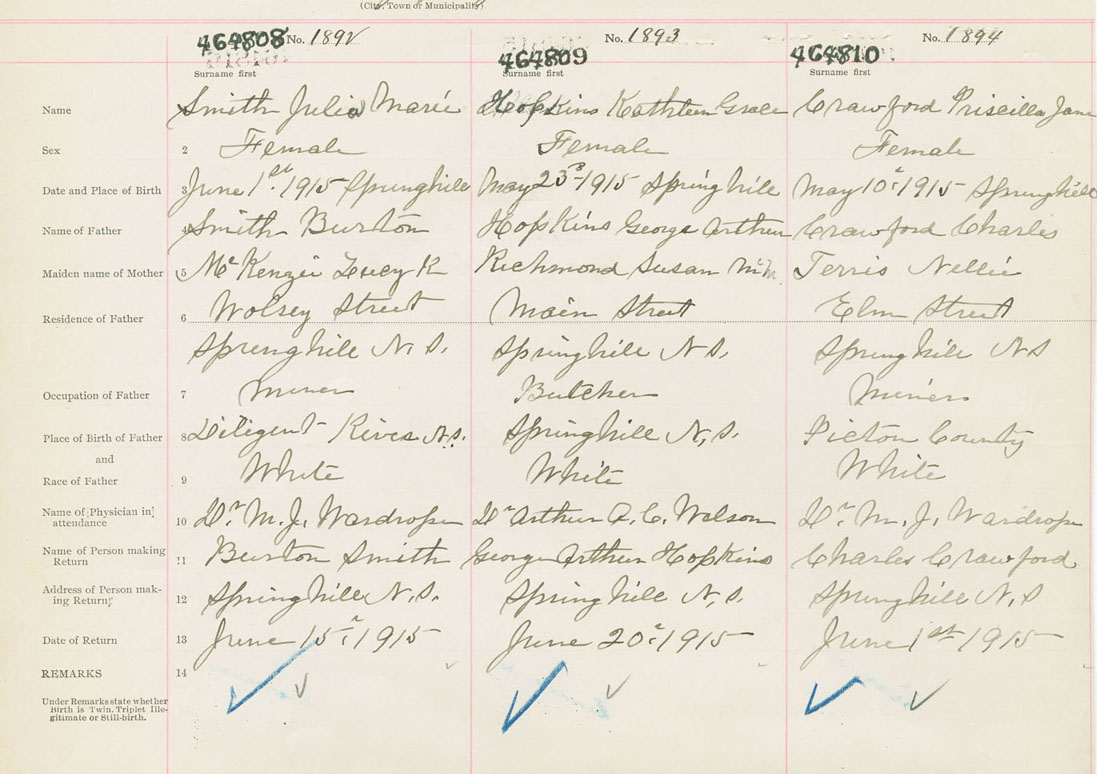 (City, Town or Municipality)
464808 No. 1892
Surname first
No. 1893
464809
Surname first
No. 1894
464810
Surname first
Name Smith Julia Marie Hopkins Kathleen Grace Crawford Priscilla Jane
Sex 2 Female Female Female
Date and Place of Birth 3 June 1st 1915 Springhill May 23rd 1915 Springhill May 10th 1915 Springhill
Name of Father 4 Smith Burton Hopkins George Arthur Crawford Charles
Maiden name of Mother 5 McKenzie Lucy K Richmond Susan Terris Nellie
Residence of Father 6 Wolsey Street Main Street Elm Street
Springhill N.S. Springhill N.S. Springhill N S
Occupation of Father 7 Miner Butcher Miner
Place of Birth of Father 8 Diligent River N.S. Springhill N.S. Pictou County
and
Race of Father 9 White White White
Name of Physician in attendance 10 Dr M. J. Wardrope Dr Arthur A. C. Wilson Dr M. J. Wardrope
Name of Person making Return 11 Burton Smith George Arthur Hopkins Charles Crawford
Address of Person making Return 12 Springhill N.S. Springhill N.S. Springhill N.S
Date of Return 13 June 15th 1915 June 20th 1915 June 1st 1915
REMARKS 14
Under Remarks state whether
Birth is Twin, Triplet Ille-
gitimate or Still-birth.